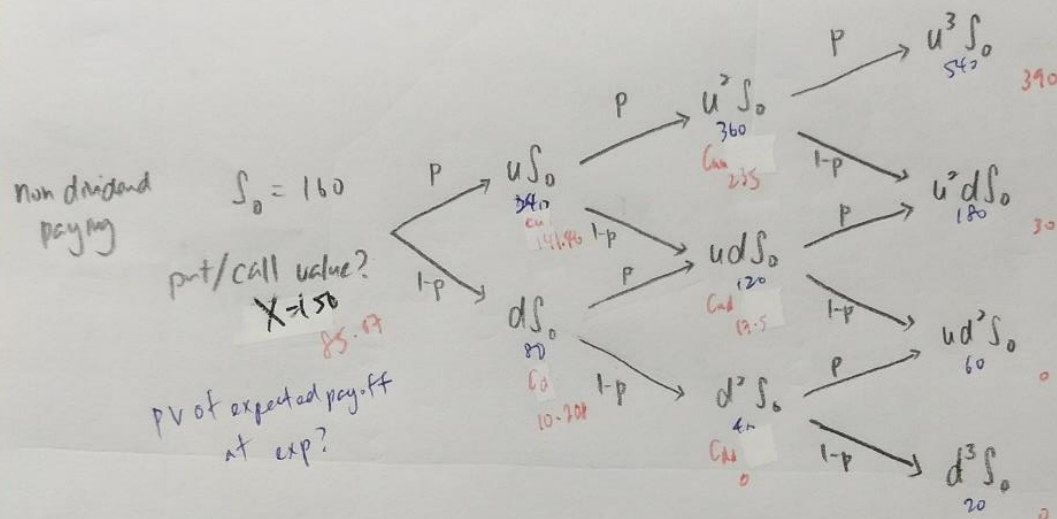 non dividend
paying
S₀ = 160
put/call value?
X=150
85.07
PV of expected payoff
at exp?
P
1-p
uS₀
240
Cu
141.96
dS₀
80
Cd
10.208
P
1-p
P
1-p
u²S₀
360
Cuu
235
udS₀
120
Cud
13.5
d²S₀
40
Cdd
0
P
1-p
P
1-p
P
1-p
u³S₀
540
390
u²dS₀
180
30
ud²S₀
60
0
d³S₀
20
0